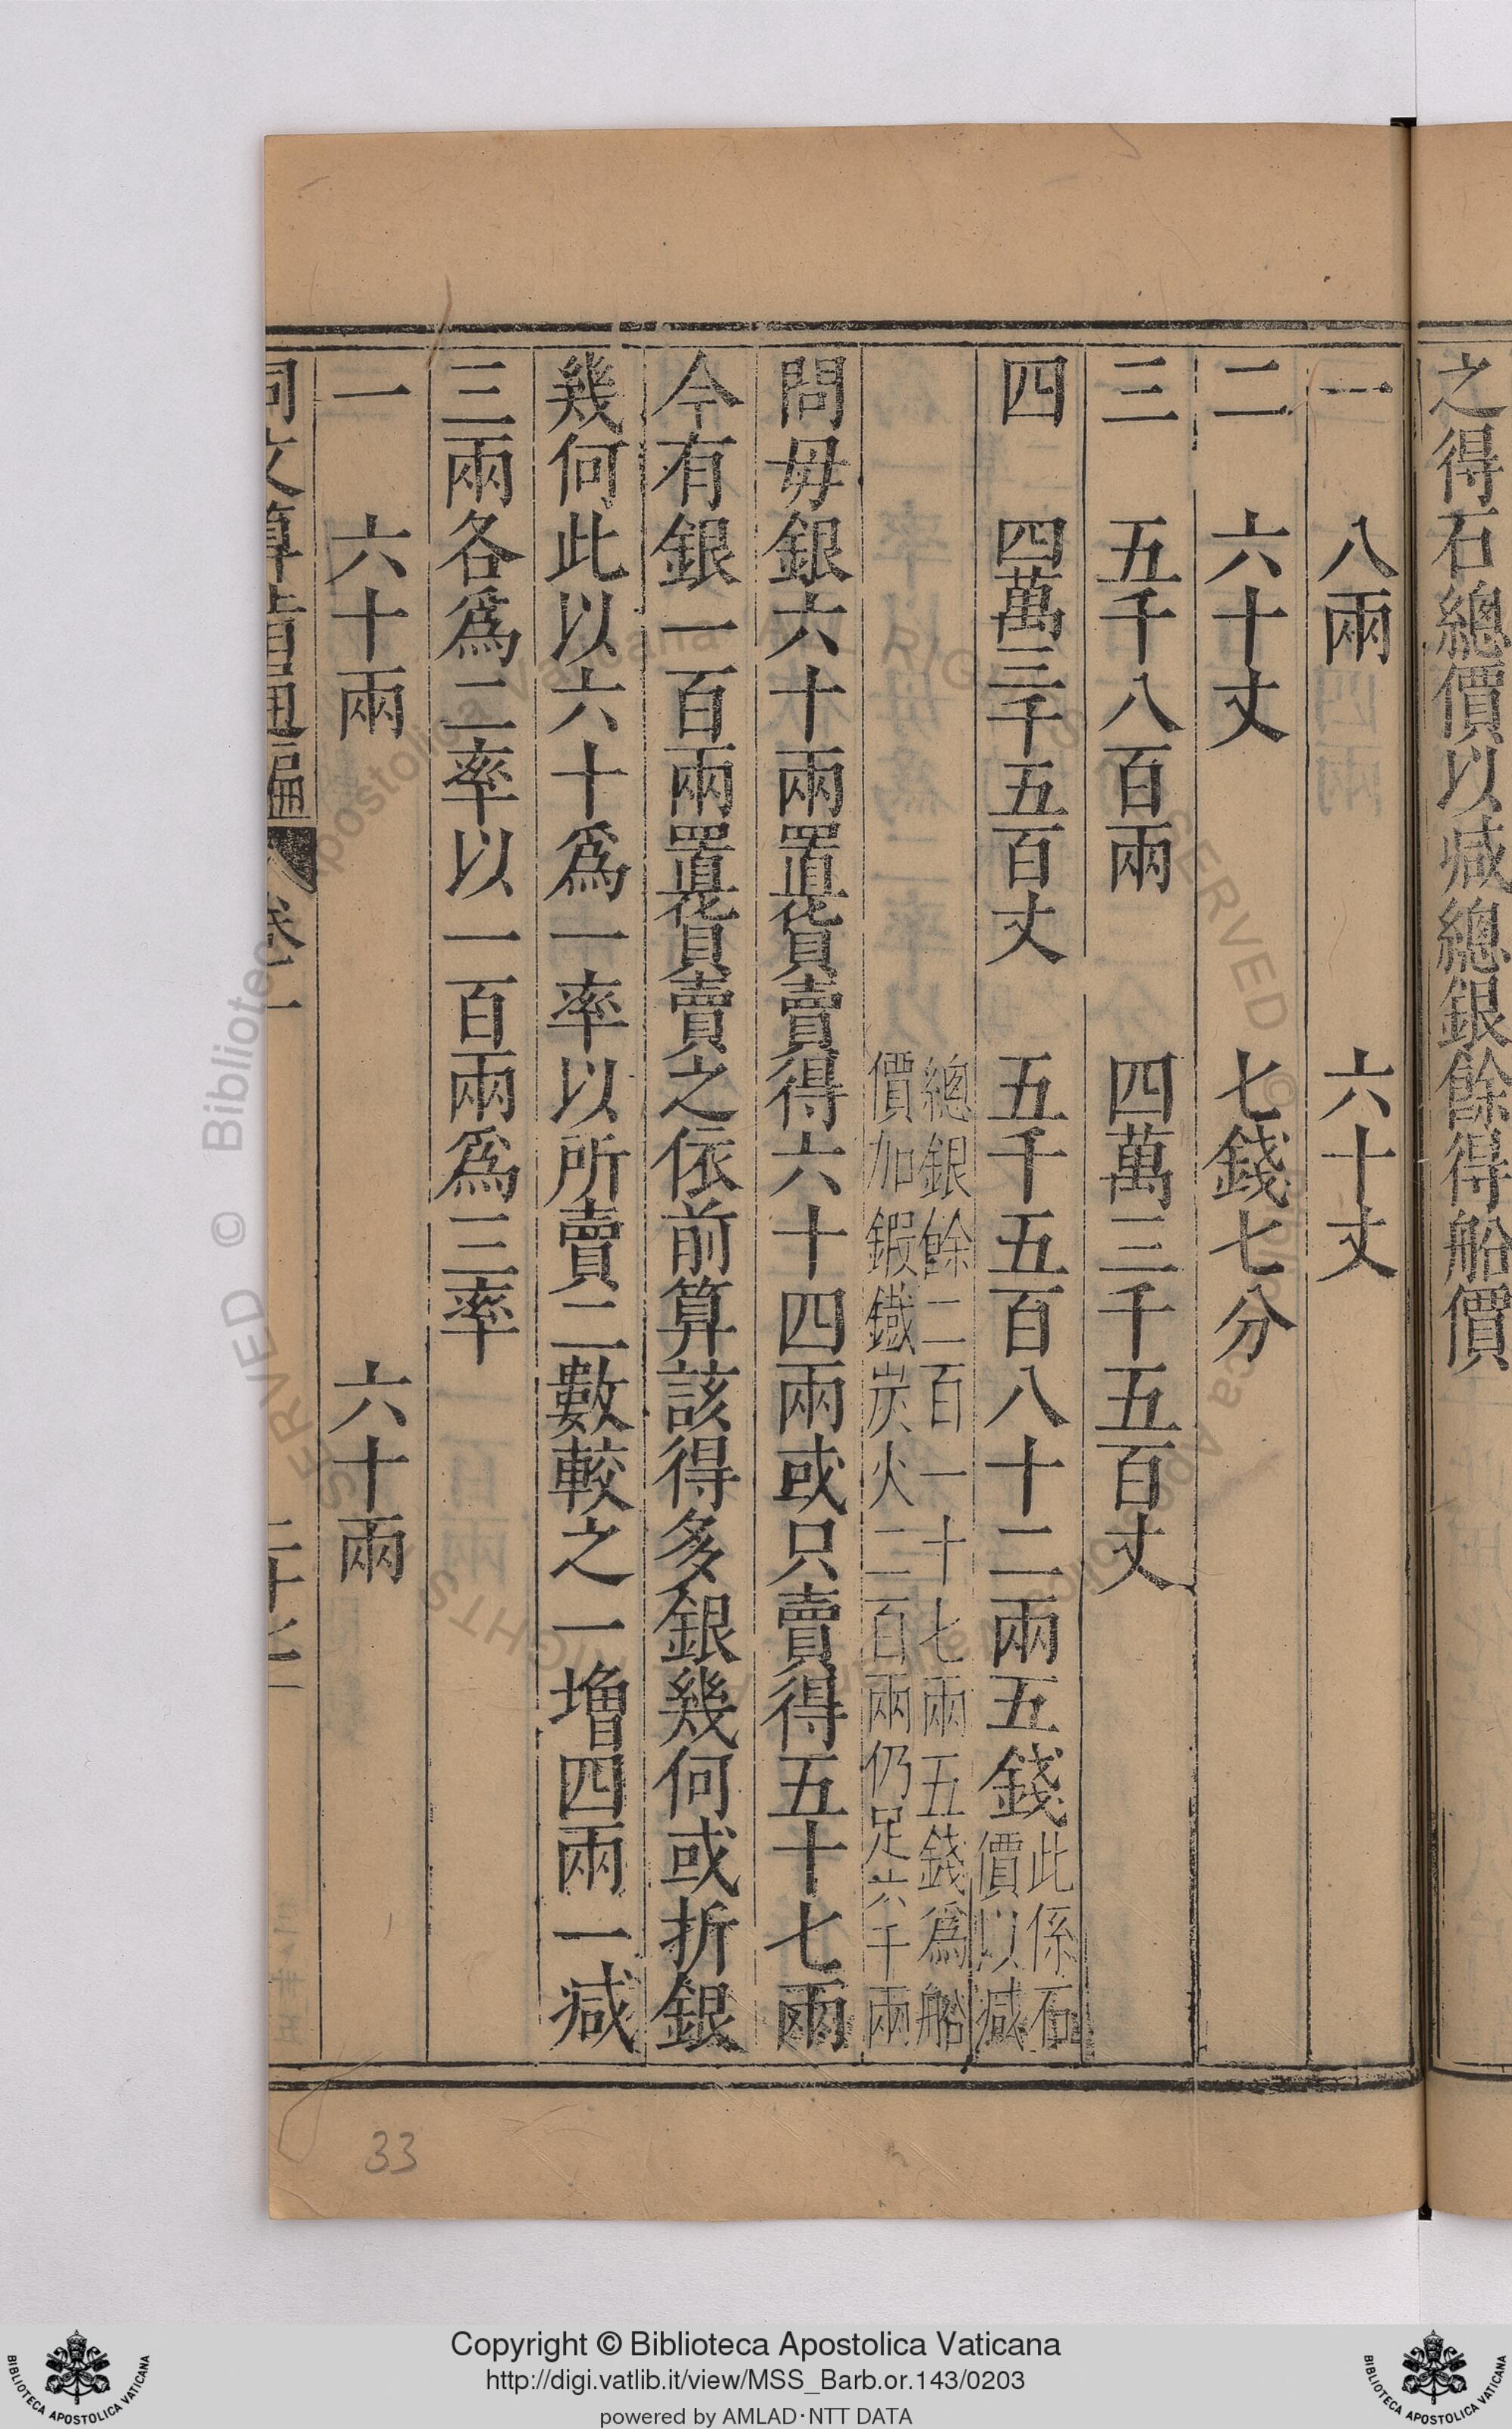 之得石總價以減總銀餘得船價
一 八兩 六十丈
二 六十丈 七錢七分
三 五千八百兩 四萬三千五百丈
四 四萬三千五百丈 五千五百八十二兩五錢 此係石價以減
總銀餘二百一十七兩五錢爲船
價加鍜鐵炭火二百兩仍足六千兩
問毋銀六十兩置貨賣得六十四兩或只賣得五十七兩
今有銀一百兩置貨賣之依前算該得多銀幾何或折銀
幾何此以六十爲一率以所賣二數較之一增四兩一減
三兩各爲二率以一百兩爲三率
一 六十兩 六十兩
同文算指通編 卷
33
© Biblioteca Apostolica Vaticana ALL RIGHTS RESERVED
Copyright © Biblioteca Apostolica Vaticana
http://digi.vatlib.it/view/MSS_Barb.or.143/0203
powered by AMLAD·NTT DATA
BIBLIOTECA APOSTOLICA VATICANA
BIBLIOTECA APOSTOLICA VATICANA